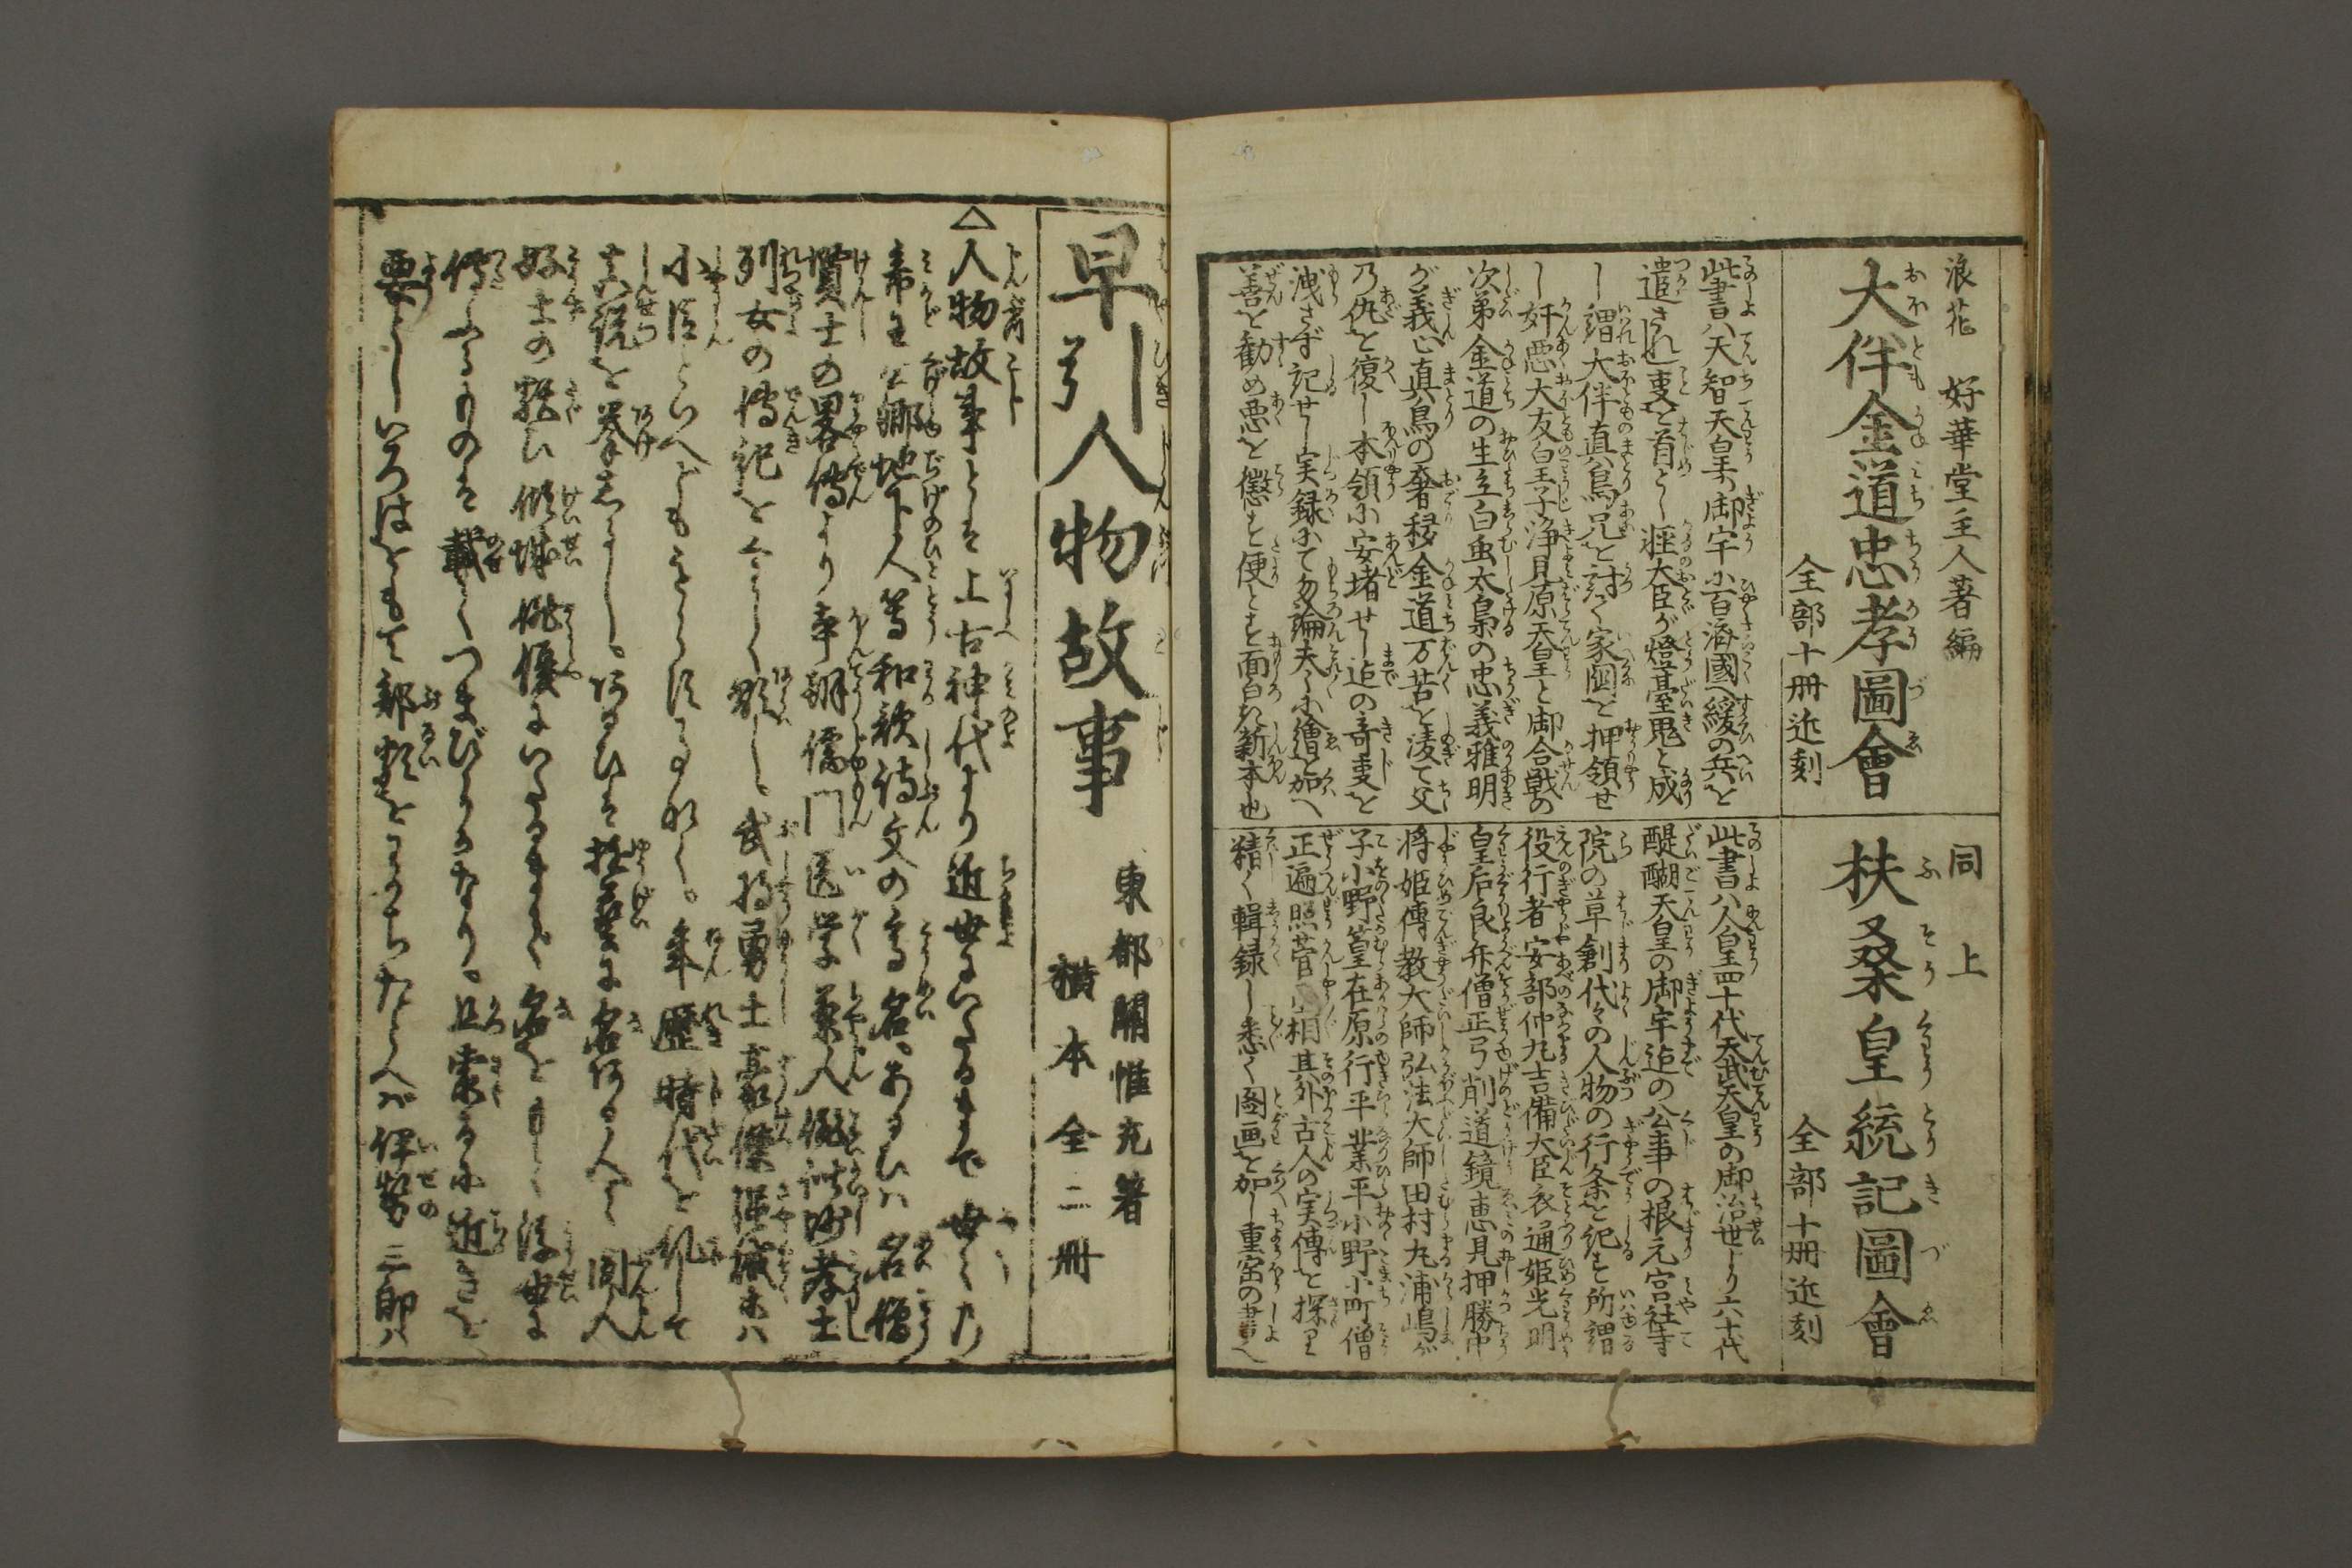 浪花 好華堂主人著編
大伴金道忠孝圖會
全部十冊近刻
此書ハ天智天皇の御宇に百濟國へ援の兵を
遣されし事を首とし狂大臣が燈臺鬼と成
し謂大伴真鳥兄を討て家国を押領せ
し奸悪大友皇子浄見原天皇と御合戦の
次第金道の生立白虫太梟の忠義雅明
が義心真鳥の奢移金道万苦を凌て父
乃仇を復し本領に安堵せし迄の奇事を
洩さず記せし実録にて勿論夫々に繪を加へ
善を勧め悪を懲を便とす面白き新本也
同上
扶桑皇統記圖會
全部十冊近刻
此書ハ人皇四十代天武天皇の御治世より六十代
醍醐天皇の御宇迄の公事の根元宮社寺
院の草創代々の人物の行条を紀す所謂
役行者安部仲丸吉備大臣衣通姫光明
皇后良弁僧正弓削道鏡恵見押勝中
将姫傳教大師弘法大師田村丸浦嶋が
子小野篁在原行平業平小野小町僧
正遍照菅相其外古人の実傳を探り
精く輯録し悉く図画を加し重宝の書也
早引人物故事
東都關惟充著
横本全二冊
△人物故事とは上古神代より近世にいたるまで世々た
帝王公卿地下人等和歌詩文の高名あるひハ名僧
賢士の畧傳より本朝儒門医学藥人俳諧孝士
列女の傳記をくハしく顕し武将勇士豪傑強ハ
小臣といへどももらさず年歴時代を糺して
真説を挙あるひは技藝に名ある人々同人
好士の類ひ傾城俳優にいたるまで名を浮世に
傳へるものは載てつまびらかなり且索るに近きを
要としいろはをもて部類をわかちたとへバ伊勢三郎ハ